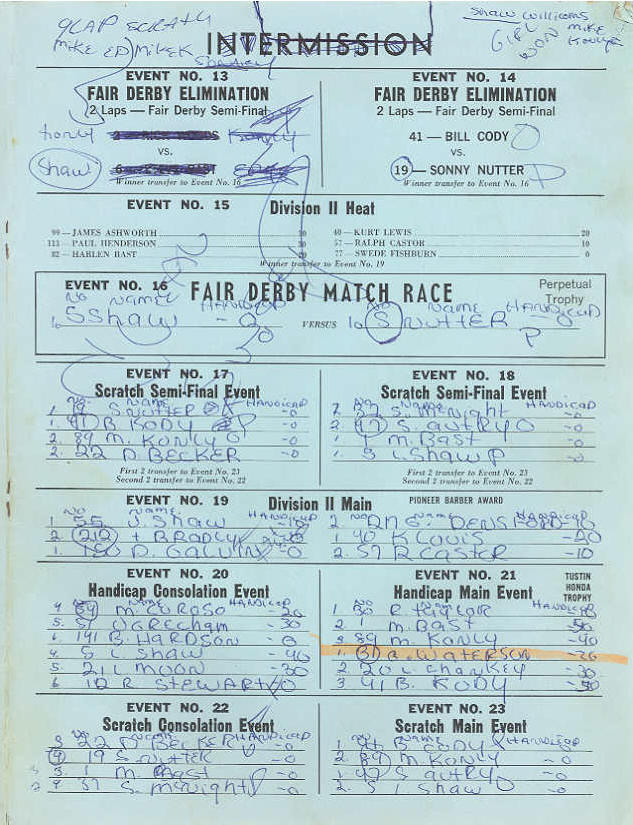 9LAP SCRATCH
MIKE ED MIKEK
Shaw Williams
GIRL WON MIKE
INTERMISSION
EVENT NO. 13
FAIR DERBY ELIMINATION
2 Laps — Fair Derby Semi-Final
Konly
VS.
Shaw
Winner transfer to Event No. 16
EVENT NO. 14
FAIR DERBY ELIMINATION
2 Laps — Fair Derby Semi-Final
41 — BILL CODY
VS.
19 — SONNY NUTTER P
Winner transfer to Event No. 16
EVENT NO. 15 Division II Heat
99—JAMES ASHWORTH 30
111—PAUL HENDERSON 30
82—HARLEN BAST 20
40—KURT LEWIS 20
57—RALPH CASTOR 10
77—SWEDE FISHBURN 0
Winner transfer to Event No. 19
EVENT NO. 16 FAIR DERBY MATCH RACE Perpetual Trophy
NO NAME HANDICAP NO NAME HANDICAP
S SHAW -0 VERSUS S NUTTER -0
P
EVENT NO. 17
Scratch Semi-Final Event
NO. NAME HANDICAP
1. 19 S. NUTTER -0
1. 41 B KODY P -0
2. 89 M. KONLY 0 -0
2. 22 D. BECKER -0
First 2 transfer to Event No. 23
Second 2 transfer to Event No. 22
EVENT NO. 18
Scratch Semi-Final Event
NO. NAME HANDICAP
2. 37 S. Mcnight -0
2. 47 S. AUTRY 0 -0
1 M. BAST -0
1. 5 L. SHAW P -0
First 2 transfer to Event No. 23
Second 2 transfer to Event No. 22
EVENT NO. 19 Division II Main PIONEER BARBER AWARD
NO NAME HANDICAP
1. 55 J. SHAW -10
2. 212 T BRADLY
1. D. GALVIN -0
NO NAME HANDICAP
2. G. DENSFORD -10
1. 40 K LOUIS -20
2. 57 R CASTER -10
EVENT NO. 20
Handicap Consolation Event
NO NAME HANDICAP
4 84 M. OROSO -20
5. 51 J GRECHAM -30
6. 141 B. HARDSON -0
4. 5 L. SHAW -40
5. 21 L MOON -30
6 12 R STEWART -0
EVENT NO. 21
Handicap Main Event
TUSTIN HONDA TROPHY
NO NAME HANDICAP
1 30 R
2. 1 M. BAST -50
3. 89 M. KONLY -40
1. 31 R. WATERSON -20
2 20 L CHANKEY -30
3 41 B. KODY -50
EVENT NO. 22
Scratch Consolation Event
NO. NAME HANDICAP
3 22 D BECKER -0
4 19 S NUTTER -0
3 1 M. BAST -0
4 37 S. MCNIGHT -0
EVENT NO. 23
Scratch Main Event
NO. NAME HANDICAP
1. 41 B CODY -0
2. 89 M. KONLY -0
1. 47 S AUTRY -0
2. 5 L. SHAW 0 -0